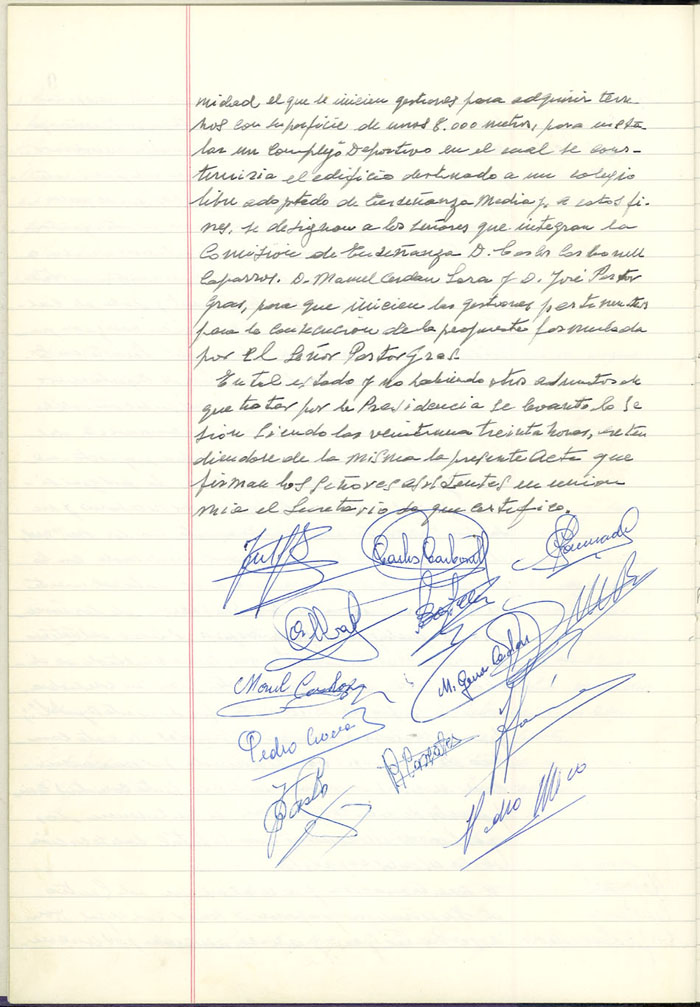 midad el que se inicien gestiones para adquirir terre
nos con superficie de unos 8.000 metros, para insta-
lar un Complejo Deportivo en el cual se cons-
truiria el edificio destinado a un colegio
libre adoptado de Enseñanza Media y a estos fi-
nes, se designan a los señores que integran la
Comisión de Enseñanza D. Carlos Carbonell
Caparros. D. Manuel Cerdan Lara y D. José Pastor
Gras, para que inicien las gestiones pertinentes
para la consecución de la propuesta formulada
por El Señor Pastor Gras
En tal estado y no habiendo otros asuntos de
que tratar por la Presidencia se levanta la Se
sión siendo las veintiuna treinta horas, exten
diendose de la misma la presente Acta que
firman los Señores asistentes en union
mia el Secretario de que certifico.
Carlos Carbonell
Manuel
M. Cerdan
Pedro
Pedro Mico